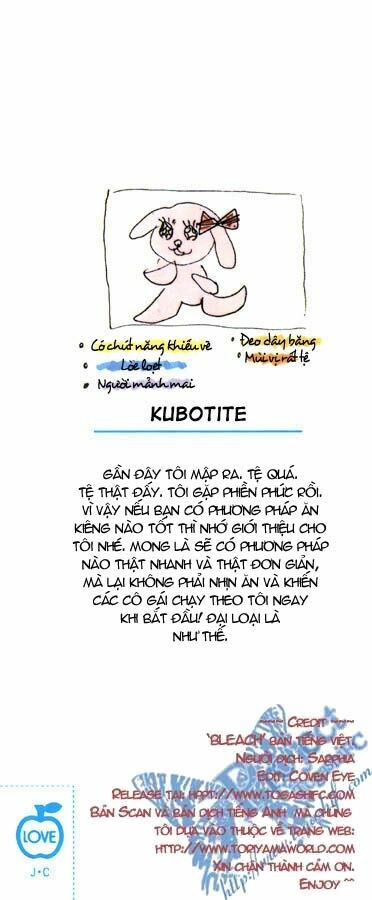 • Có chút năng khiếu vẽ
• Đeo dây băng
• Lòe loẹt
• Mùi vị rất tệ
• Người mảnh mai
KUBOTITE
GẦN ĐÂY TÔI MẬP RA. TỆ QUÁ.
TỆ THẬT ĐẤY. TÔI GẶP PHIỀN PHỨC RỒI.
VÌ VẬY NẾU BẠN CÓ PHƯƠNG PHÁP ĂN
KIÊNG NÀO TỐT THÌ NHỚ GIỚI THIỆU CHO
TÔI NHÉ. MONG LÀ SẼ CÓ PHƯƠNG PHÁP
NÀO THẬT NHANH VÀ THẬT ĐƠN GIẢN,
MÀ LẠI KHÔNG PHẢI NHỊN ĂN VÀ KHIẾN
CÁC CÔ GÁI CHẠY THEO TÔI NGAY
KHI BẮT ĐẦU! ĐẠI LOẠI LÀ
NHƯ THẾ.
~~~~ CREDIT ~~~~
'BLEACH' BẢN TIẾNG VIỆT
NGƯỜI DỊCH: SARPHIA
EDIT: COVEN EYE
RELEASE TẠI: HPPT://WWW.TOGASHIFC.COM
BẢN SCAN VÀ BẢN DỊCH TIẾNG ANH MÀ CHÚNG
TÔI DỰA VÀO THUỘC VỀ TRANG WEB:
HTTP://WWW.TORIYAMAWORLD.COM
XIN CHÂN THÀNH CẢM ƠN.
ENJOY ^^
LOVE
J•C